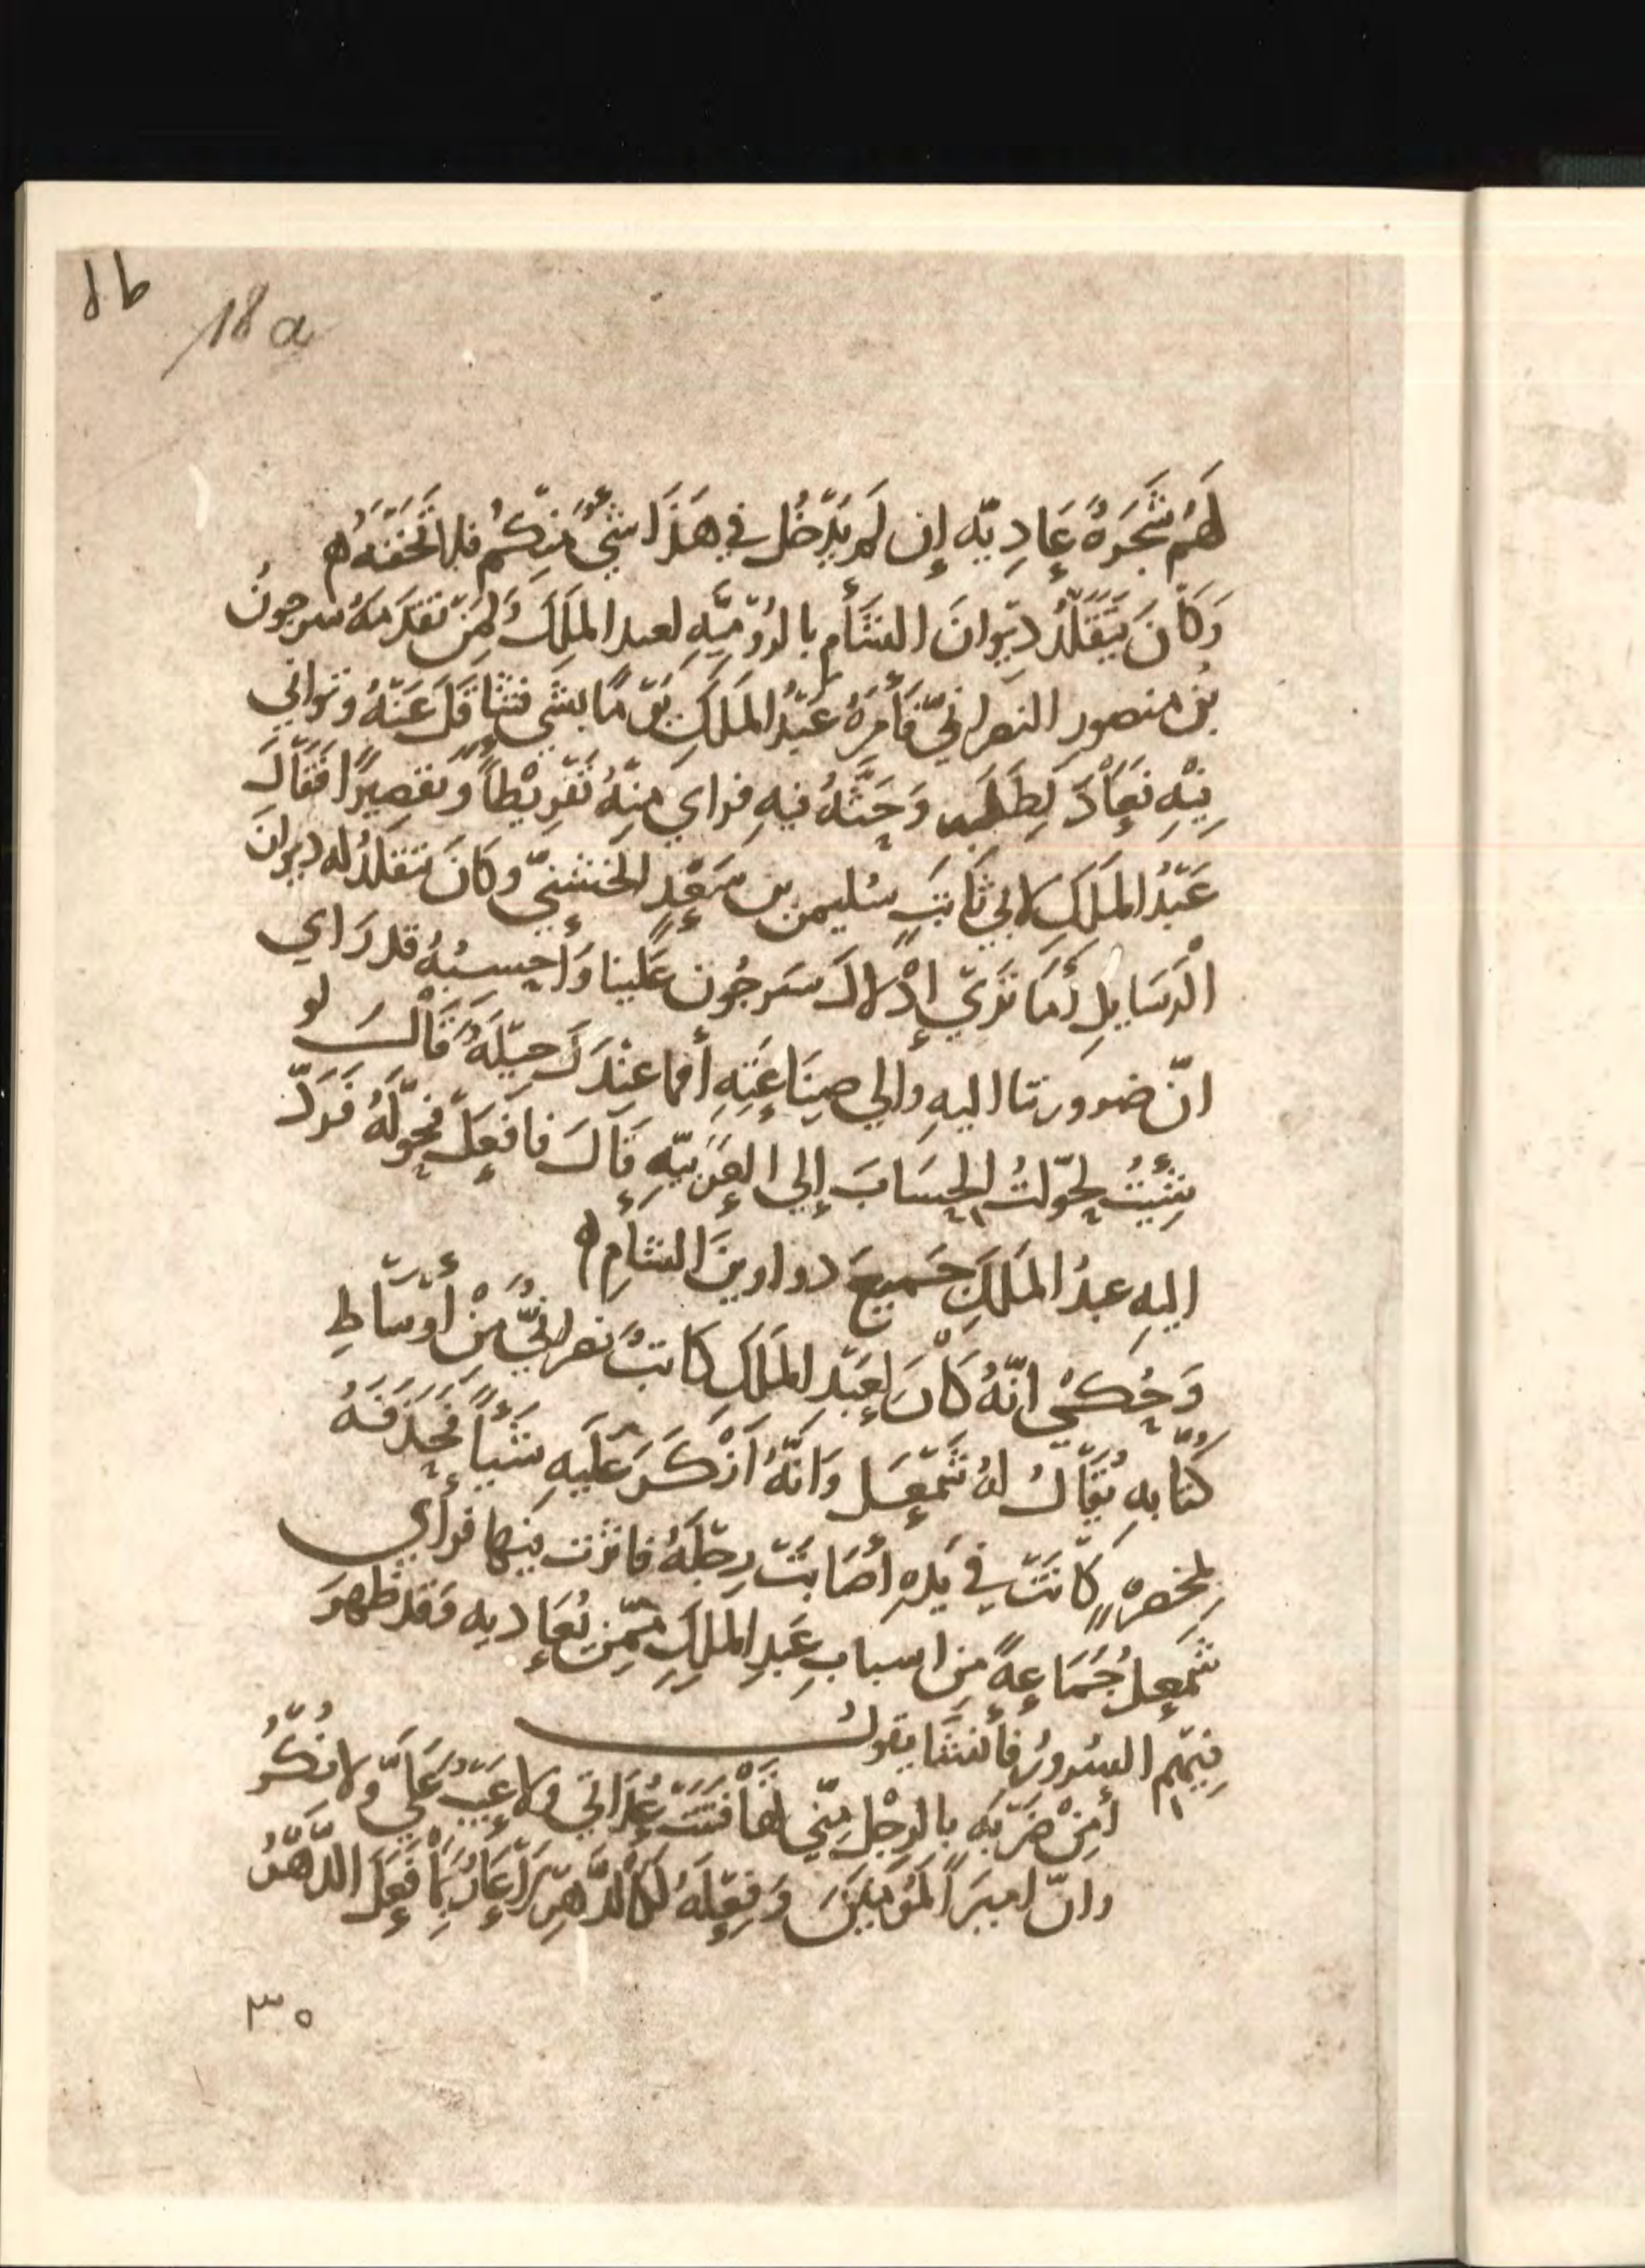 18a
لَهُم شَجَرَةٌ عَادِيّه إن لم يَدْخُل في هَذَا شَيْءٌ مِنكُم فلا تُحَفِّفَهُ ه
وَكَانَ يَتَقَلَّدُ دِيْوانَ الشَّأم بالرُوْمِيّهِ لعبد المَلِكِ وَلِمَنْ تَقَدَّمَهُ سرجونُ
بنُ منصورٍ النصرانيّ فَأَمَرَهُ عَبْدُ المَلِكِ يَوْمًا بشَيْءٍ فتثَاقَلَ عَنْهُ وتوانى
فِيْهِ فَعَادَ لِطَلَبِه وَحَثَّهُ فيهِ فراي مِنْهُ تَفْرِيْطاً وَتَقصِيرًا فَقَالَ
عَبْدُ المَلِكِ لابي ثَابتٍ سُليمن بن سَعْدٍ الخُشَنيّ وكَانَ يَتَقَلَّدُ له ديوانَ
الْرَسَايِلِ أَمَا تَرَي إدْلالَ سَرجُون عَلَينا وَأَحسِبُهُ قد رَاي
انّ ضرورتنا اليهِ والي صِنَاعَتِهِ أفما عِنْدَكَ حِيْلَةٌ قَالَ لو
شِئْتُ لحَوّلتُ الحِسَابَ إلي العَرَبيّهِ قَالَ فافعَلْ فَحَوَّلَهُ فَرَدّ
اليهِ عبدُ المَلِكِ جَميعَ دواوينَ الشأمِ ه
وَحُكِيَ انّهُ كَانَ لعَبْدِ المَلِكِ كاتبٌ نصرانيٌّ مِنْ أَوْسَاطِ
كُتّابهِ يُقَالُ لهُ شَمْعَل وَانَّهُ أَنْكَرَ عَلَيهِ شَيْأً فَحَذَفَهُ
بمخصرهٍ كَانَتْ في يَدِهِ أصَابَتْ رِجْلَهُ فاثرت فيها فرأي
شمعلُ جَمَاعةً مِن اسبابِ عَبدِ المَلِكِ مِمّن يُعَاديه وَقد ظَهرَ
فِيْهِم السرورُ فأنشَا يقولُ
أمِنْ ضَرْبَهٍ بالرِجْلِ مِنّي تَهَافَتَتْ عُدَاتي ولا عَيْبٌ عَلَيَّ ولا نُكْرُ
وانّ اميرَ المُؤمِنينَ وَفِعْلَهُ لكَالدَّهْرِ لا عَارٌ بمَا فَعَلَ الدَّهْرُ